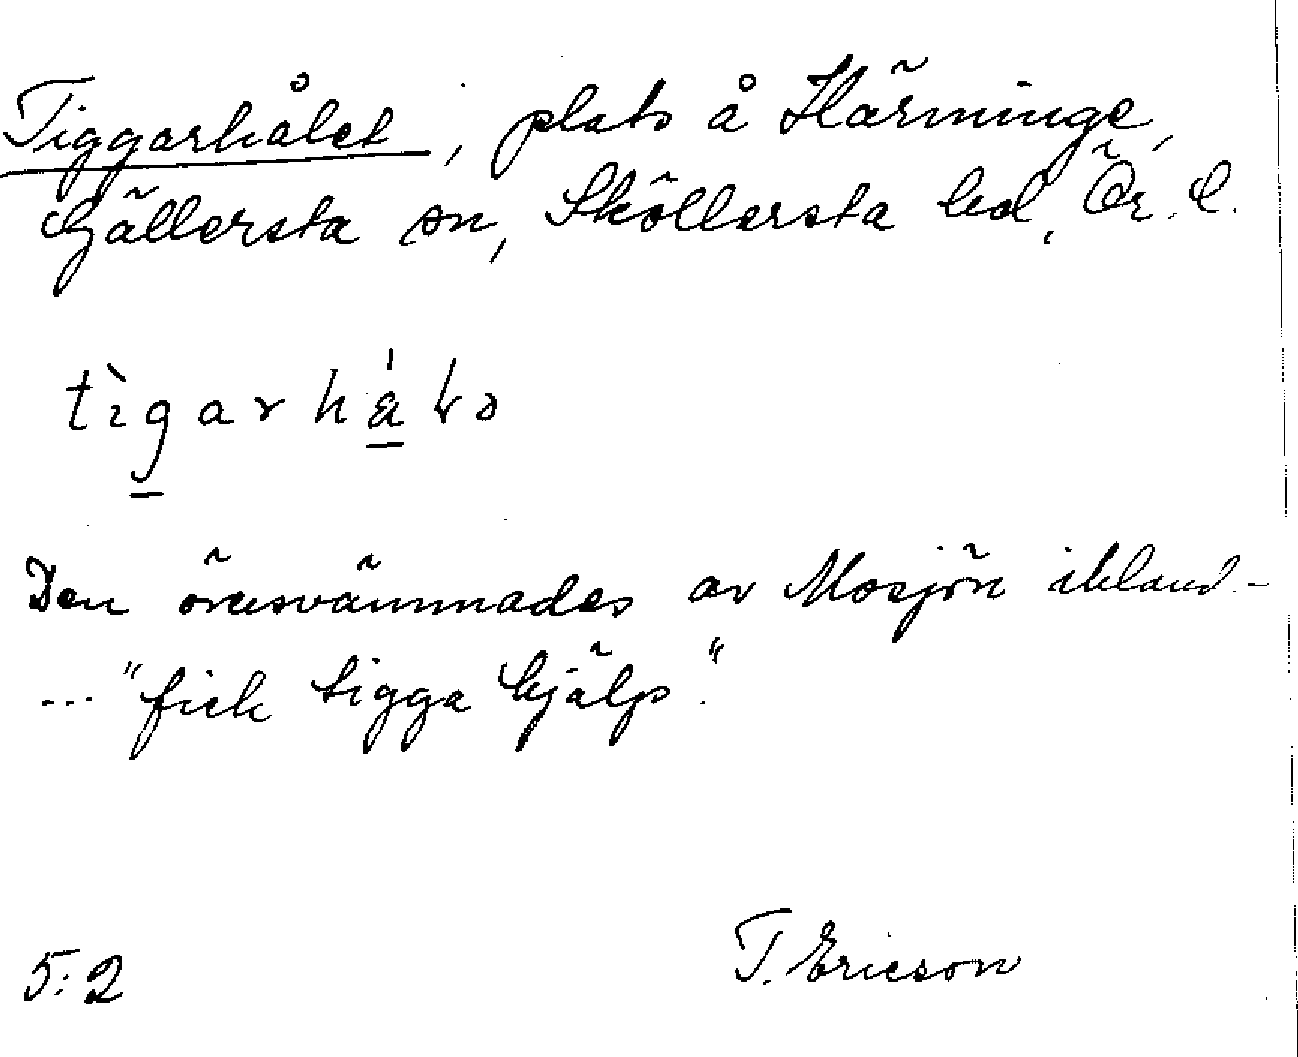 Tiggarhålet, plats å Härminge,
Gällersta sn, Sköllersta hd, Ör. l.
tìgarhǻɫə
Den översvämmades av Mosjön ibland -
... "fick tigga hjälp".
5:2 T. Ericson